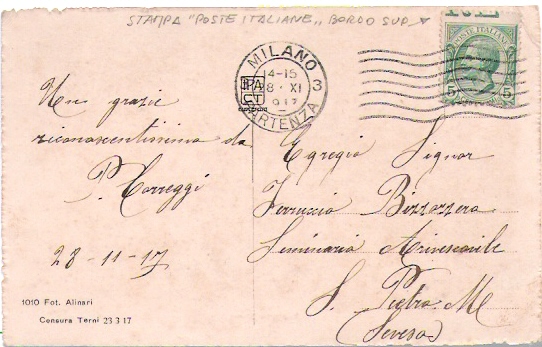 STAMPA "POSTE ITALIANE,, BORDO SUP.
MILANO
PARTENZA
3
14-15
XI
917
POSTE ITALIANE
5 5
Un grazie
riconoscentissimo da
P. Correggi
28-11-17
1010 Fot. Alinari
Censura Terni 23 3 17
Egregio Signor
Ferruccio Bizzozzero
Seminario Arcivescovile
S. Pietro M.
(Seveso)